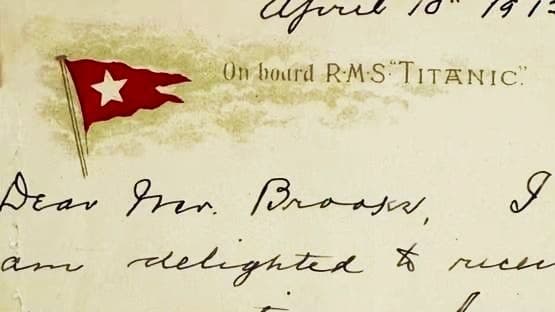 April 10th 191
On board R·M·S "TITANIC".
Dear Mr. Brooks, I
am delighted to